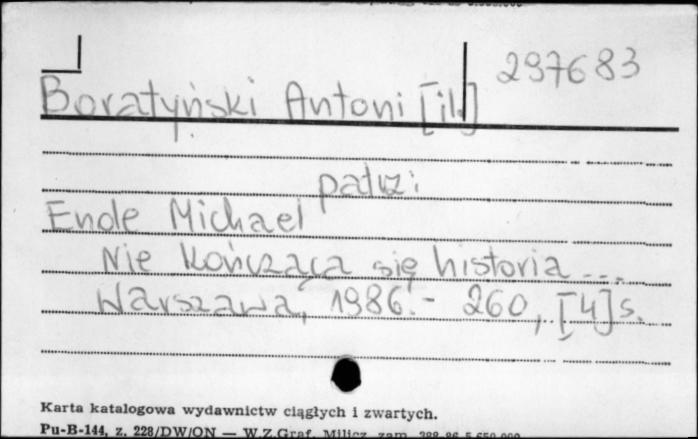 297683
Boratyński Antoni [il.]
patrz:
Ende Michael
Nie kończąca się historia ...
Warszawa, 1986.- 260, [4] s.
Karta katalogowa wydawnictw ciągłych i zwartych.
Pu-B-144, z. 228/DW/ON — W.Z.Graf. Milicz zam.